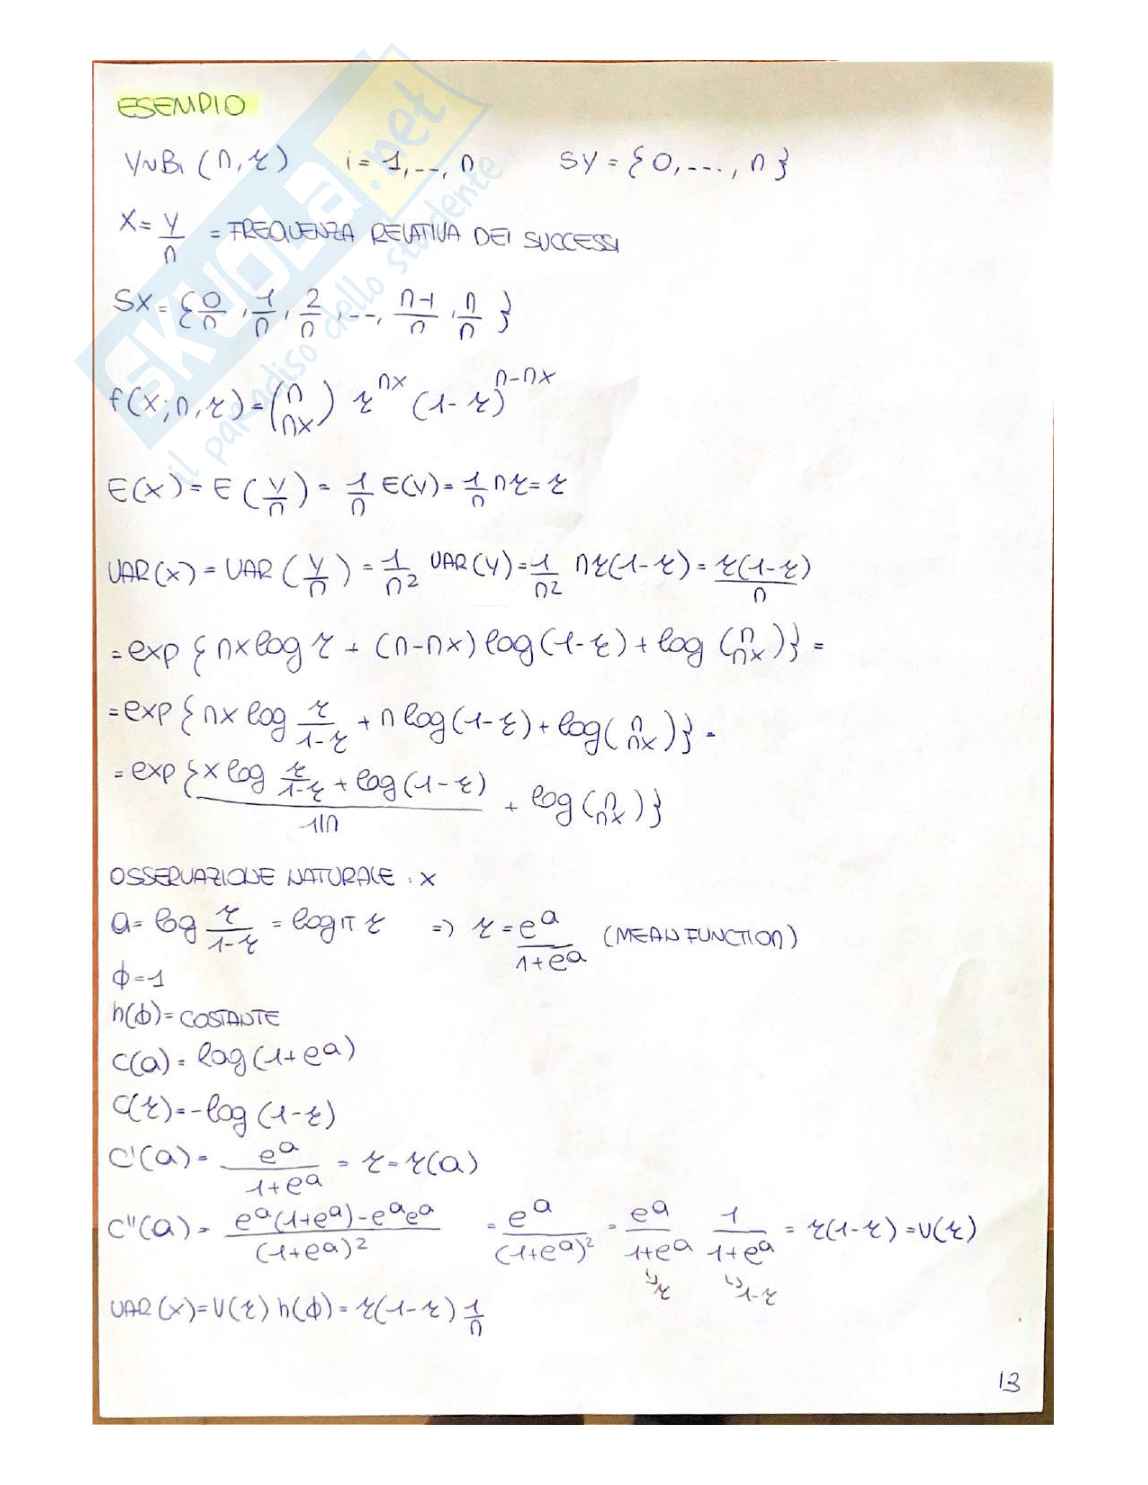 ESEMPIO
Y~Bi (n, r) i = 1, ..., n SY = {0, ..., n}
X = Y/n = FREQUENZA RELATIVA DEI SUCCESSI
SX = {0/n, 1/n, 2/n, ..., n-1/n, n/n}
f(x; n, r) = (n nx) r^nx (1-r)^n-nx
E(X) = E(Y/n) = 1/n E(Y) = 1/n nr = r
VAR(X) = VAR(Y/n) = 1/n² VAR(Y) = 1/n² nr(1-r) = r(1-r)/n
= exp {nx log r + (n-nx) log(1-r) + log (n nx)} =
= exp {nx log r/1-r + n log(1-r) + log(n nx)} =
= exp {x log r/1-r + log(1-r) / 1/n + log(n nx)}
OSSERVAZIONE NATURALE : X
a = log r/1-r = logit r => r = e^a/1+e^a (MEAN FUNCTION)
ϕ = 1
h(ϕ) = COSTANTE
C(a) = log(1+e^a)
C(r) = -log(1-r)
C'(a) = e^a/1+e^a = r = r(a)
C''(a) = e^a(1+e^a)-e^a e^a/(1+e^a)² = e^a/(1+e^a)² = e^a/1+e^a 1/1+e^a = r(1-r) = V(r)
↳ r ↳ 1-r
VAR(X) = V(r) h(ϕ) = r(1-r) 1/n
13
SKUOLA.net
il paradiso dello studente